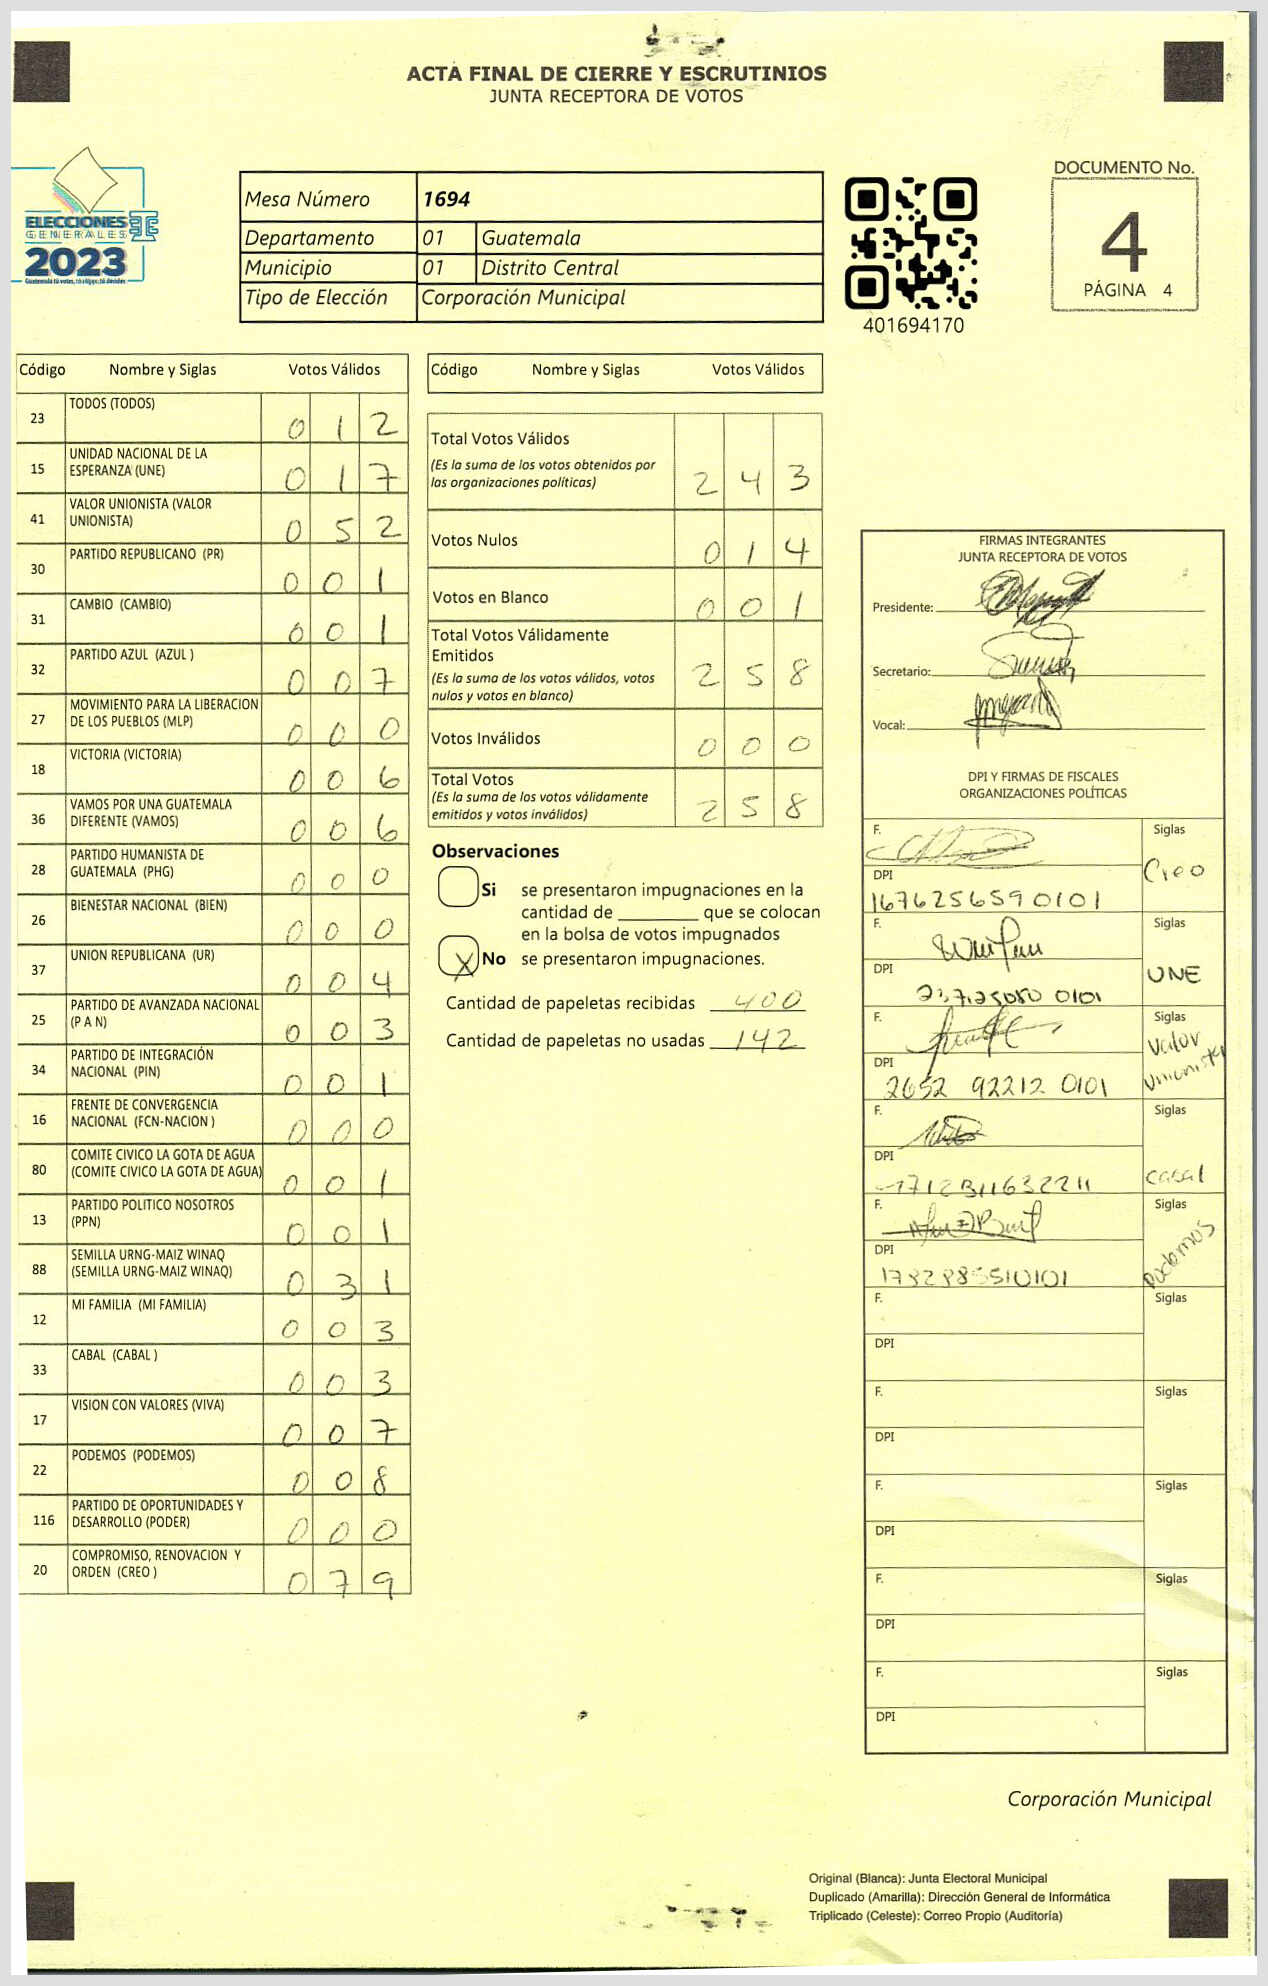 ACTA FINAL DE CIERRE Y ESCRUTINIOS
JUNTA RECEPTORA DE VOTOS
ELECCIONES
GENERALES
2023
Guatemala tú votas, tú eliges, tú decides
Mesa Número 1694
Departamento 01 Guatemala
Municipio 01 Distrito Central
Tipo de Elección Corporación Municipal
401694170
DOCUMENTO No.
4
PÁGINA 4
Código Nombre y Siglas Votos Válidos
23 TODOS (TODOS) 0 1 2
15 UNIDAD NACIONAL DE LA
ESPERANZA (UNE) 0 1 7
41 VALOR UNIONISTA (VALOR
UNIONISTA) 0 5 2
30 PARTIDO REPUBLICANO (PR) 0 0 1
31 CAMBIO (CAMBIO) 0 0 1
32 PARTIDO AZUL (AZUL ) 0 0 7
27 MOVIMIENTO PARA LA LIBERACION
DE LOS PUEBLOS (MLP) 0 0 0
18 VICTORIA (VICTORIA) 0 0 6
36 VAMOS POR UNA GUATEMALA
DIFERENTE (VAMOS) 0 0 6
28 PARTIDO HUMANISTA DE
GUATEMALA (PHG) 0 0 0
26 BIENESTAR NACIONAL (BIEN) 0 0 0
37 UNION REPUBLICANA (UR) 0 0 4
25 PARTIDO DE AVANZADA NACIONAL
(P A N) 0 0 3
34 PARTIDO DE INTEGRACIÓN
NACIONAL (PIN) 0 0 1
16 FRENTE DE CONVERGENCIA
NACIONAL (FCN-NACION ) 0 0 0
80 COMITE CIVICO LA GOTA DE AGUA
(COMITE CIVICO LA GOTA DE AGUA) 0 0 1
13 PARTIDO POLITICO NOSOTROS
(PPN) 0 0 1
88 SEMILLA URNG-MAIZ WINAQ
(SEMILLA URNG-MAIZ WINAQ) 0 3 1
12 MI FAMILIA (MI FAMILIA) 0 0 3
33 CABAL (CABAL ) 0 0 3
17 VISION CON VALORES (VIVA) 0 0 7
22 PODEMOS (PODEMOS) 0 0 8
116 PARTIDO DE OPORTUNIDADES Y
DESARROLLO (PODER) 0 0 0
20 COMPROMISO, RENOVACION Y
ORDEN (CREO ) 0 7 9
Código Nombre y Siglas Votos Válidos
Total Votos Válidos
(Es la suma de los votos obtenidos por
las organizaciones políticas) 2 4 3
Votos Nulos 0 1 4
Votos en Blanco 0 0 1
Total Votos Válidamente
Emitidos
(Es la suma de los votos válidos, votos
nulos y votos en blanco) 2 5 8
Votos Inválidos 0 0 0
Total Votos
(Es la suma de los votos válidamente
emitidos y votos inválidos) 2 5 8
Observaciones
Si se presentaron impugnaciones en la
cantidad de ________ que se colocan
en la bolsa de votos impugnados
X No se presentaron impugnaciones.
Cantidad de papeletas recibidas 400
Cantidad de papeletas no usadas 142
FIRMAS INTEGRANTES
JUNTA RECEPTORA DE VOTOS
Presidente:
Secretario:
Vocal:
DPI Y FIRMAS DE FISCALES
ORGANIZACIONES POLÍTICAS
F. Siglas
DPI Creo
1676256590101
F. Siglas
DPI UNE
0101
F. Siglas
DPI Valor
2652 92212 0101 Unionista
F. Siglas
DPI
1712311632211 cabal
F. Siglas
DPI Podemos
1782985510101
F. Siglas
DPI
F. Siglas
DPI
F. Siglas
DPI
F. Siglas
DPI
F. Siglas
DPI
Corporación Municipal
Original (Blanca): Junta Electoral Municipal
Duplicado (Amarilla): Dirección General de Informática
Triplicado (Celeste): Correo Propio (Auditoría)